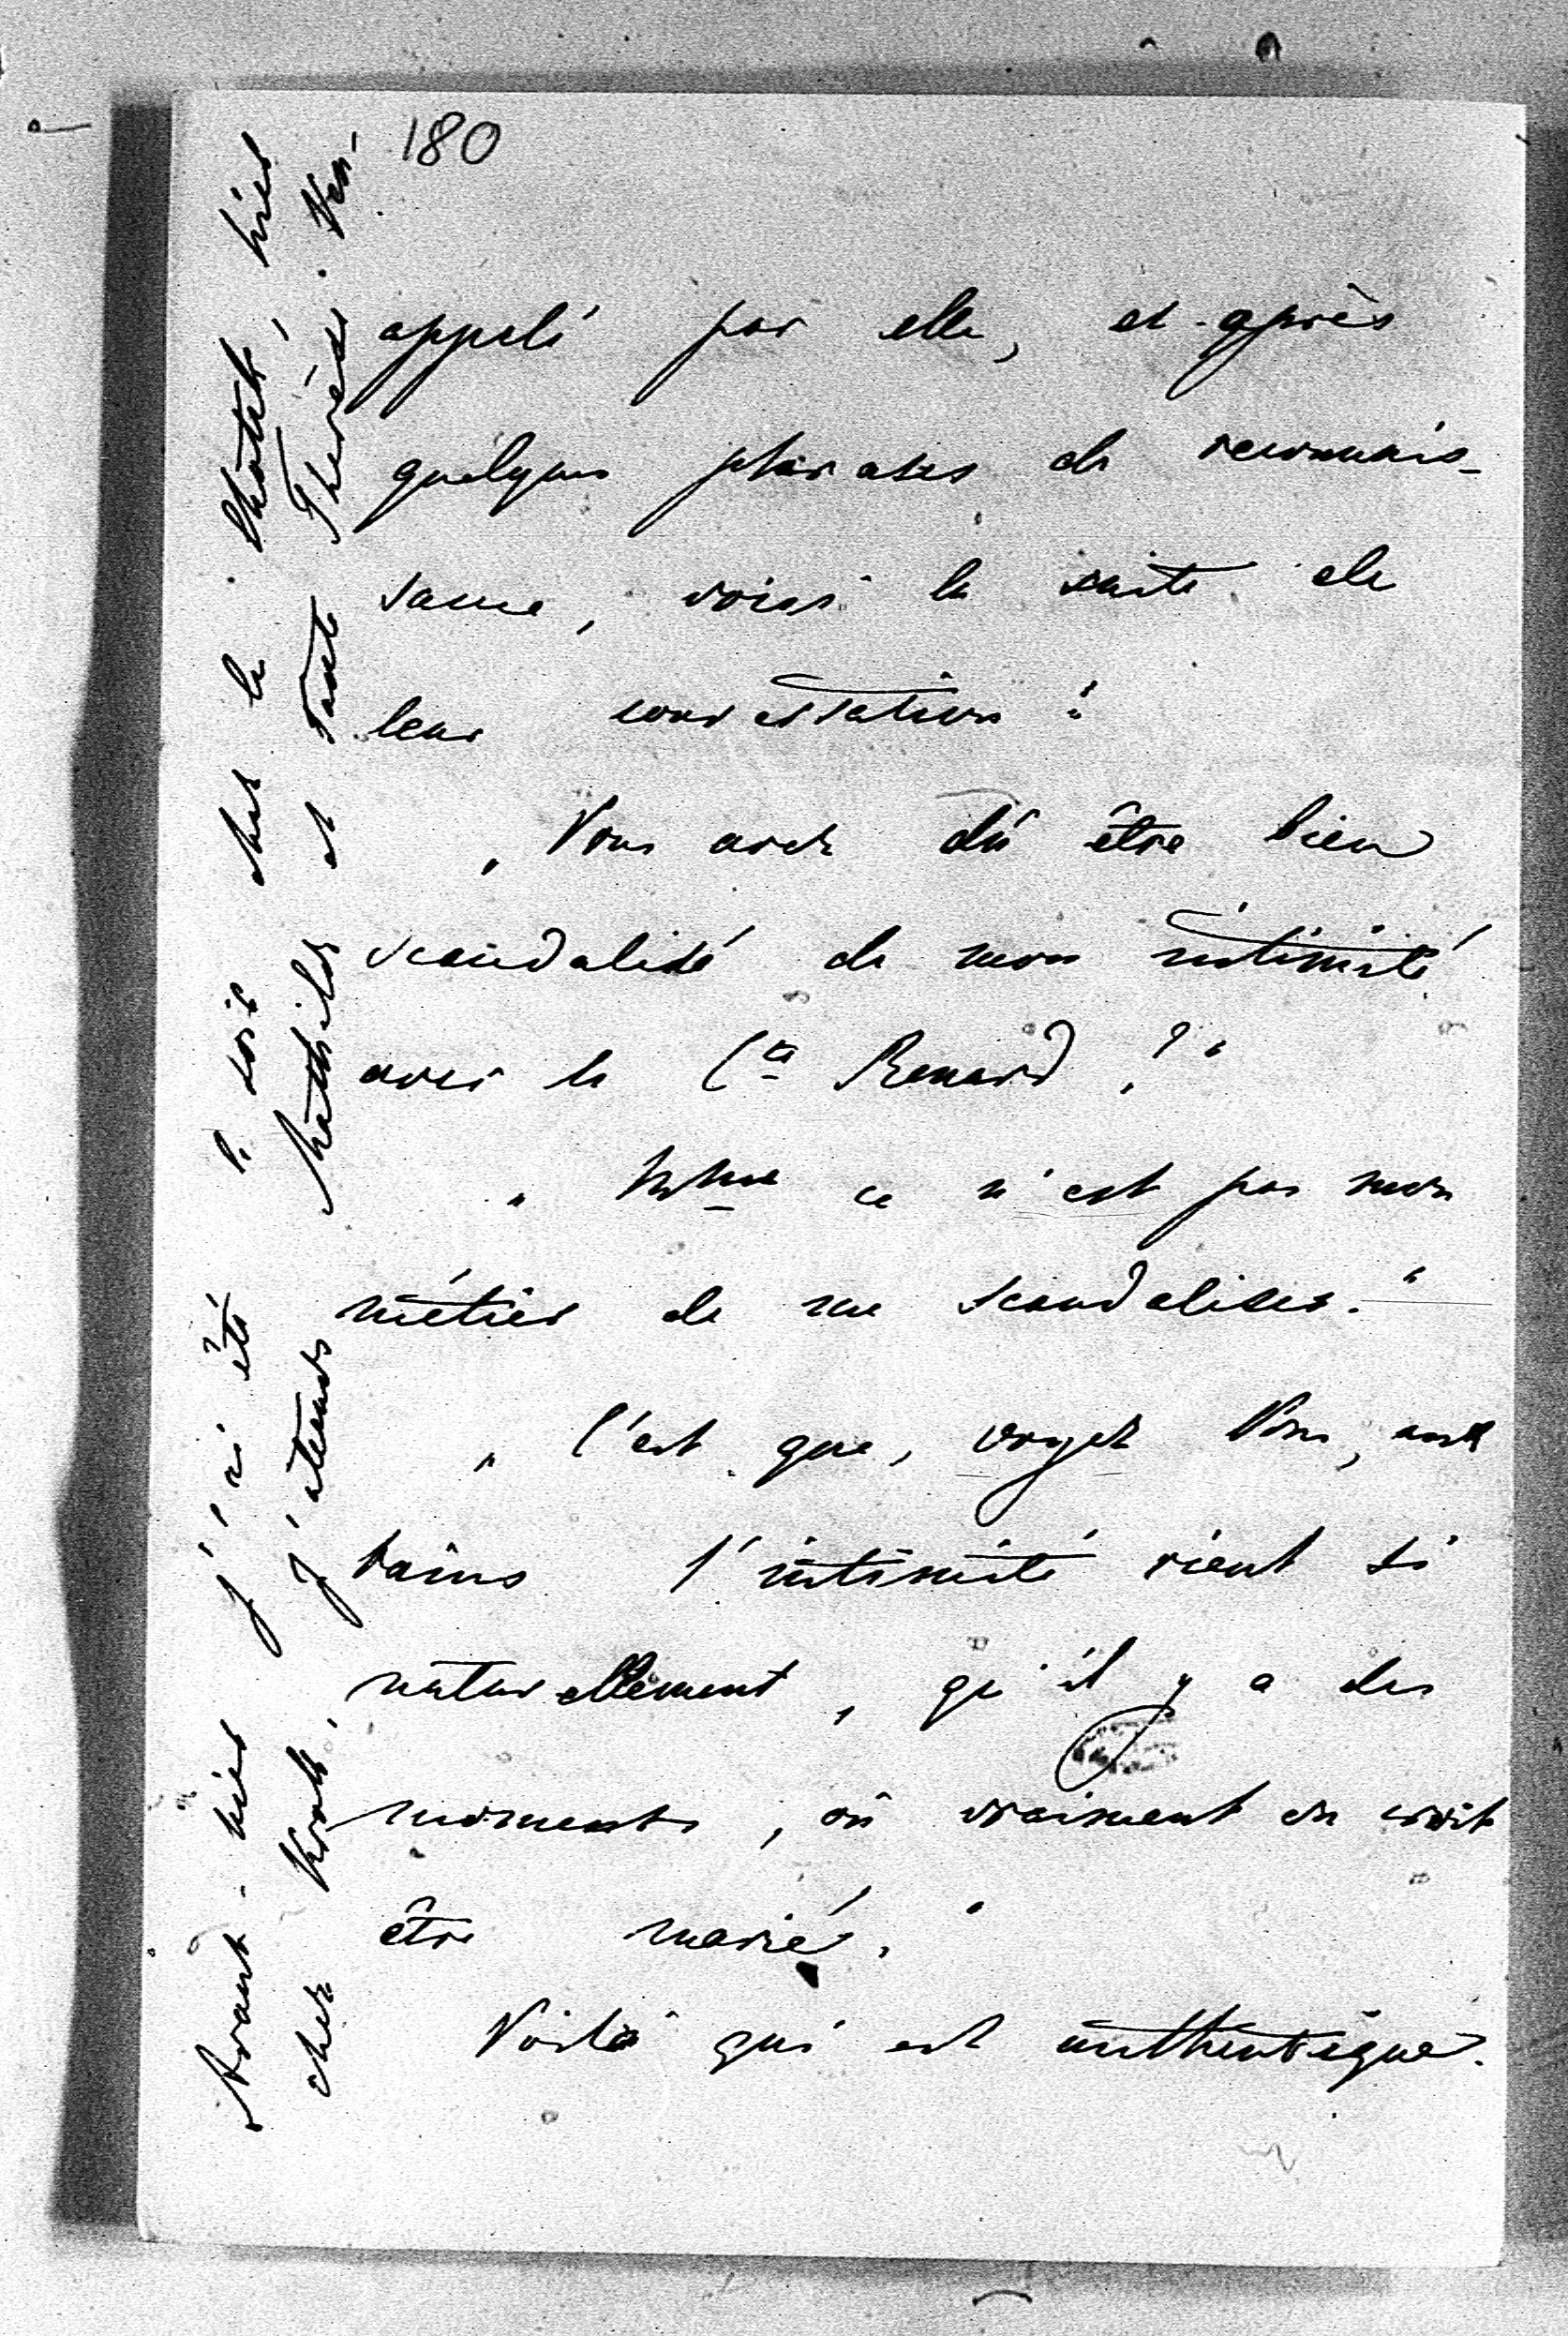 180
appelé par elle, et après
quelques phrases de reconnais-
sance, voici la suite de
leur conversation:
„Vous avez dû être bien
scandalisé de mon intimité
avec le Cte Renard?"
„Mme ce n'est pas mon
métier de me scandaliser."
„C'est que, voyez Vous,
bains l'intimité vient si
naturellement, qu'il y a des
moments, où vraiment on croit
être marié."
Voilà qui est authentique.
Avant-hier j'ai été soir chez la hier
chez j'attends Mathilde et Tante Thérèse.